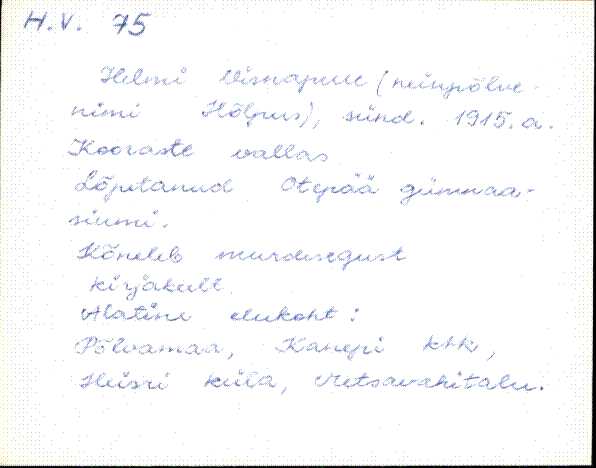 H.V. 75
Helmi Visnapuu (neiupõlve-
nimi Hõlpus), sünd. 1915. a.
Kooraste vallas
Lõpetanud Otepää gümnaa-
siumi.
Kõneleb murdesegust
kirjakeelt.
Alatine elukoht:
Põlvamaa, Kanepi khk,
Heisri küla, Metsavahitalu.